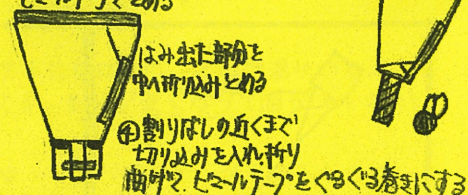 ビニールテープでとめる
はみ出た部分を
中へ折り込みとめる
④割りばしの近くまで
切り込みを入れ、折り
曲げて、ビニールテープをぐるぐる巻きにする